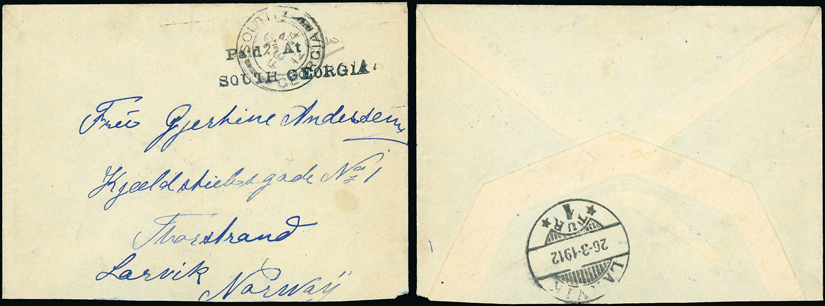 Paid At
SOUTH GEORGIA.
SOUTH GEORGIA
FE
12
Frü Gjerhine Andersen
Kjældstiebsgade No 1
Thorstrand
Larvik
Norway
LARVIK
TUR 1
26-3-1912